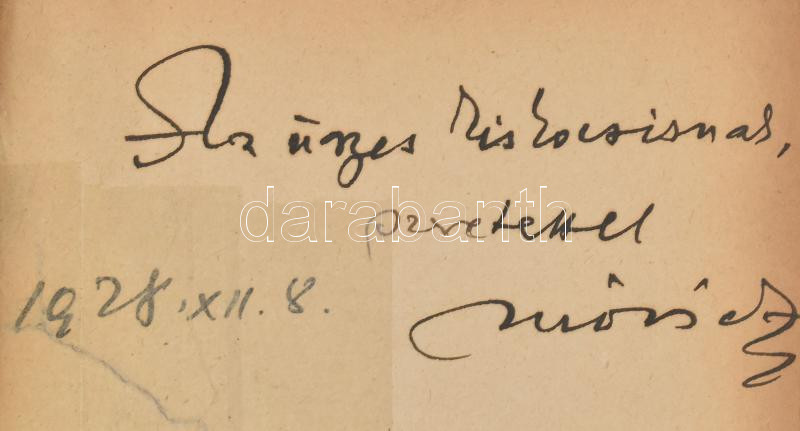 Az ügyes Kiskocsisnak,
darabanth
szeretettel
1928. XII. 8.
Móricz